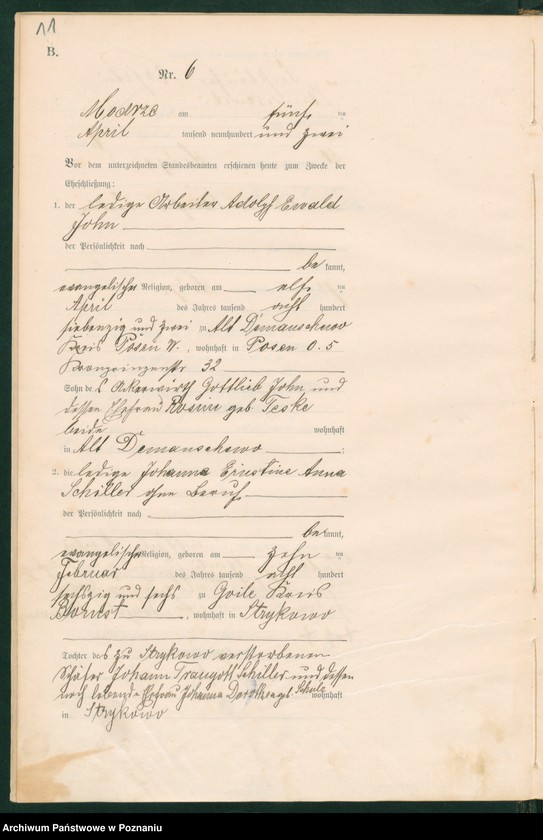 11
B.
Nr. 6
Modrze am fünf ten
April tausend neunhundert und zwei
Vor dem unterzeichneten Standesbeamten erschienen heute zum Zwecke der
Eheschließung:
1. der ledige Arbeiter Adolf Ewald
John
der Persönlichkeit nach
be kannt,
evangelischer Religion, geboren am elf ten
April des Jahres tausend acht hundert
siebenzig und zwei zu Alt Demanschewo
Kreis Posen W., wohnhaft in Posen O. 5
Kronprinzenstr 32
Sohn des Ackerwirth Gottlieb John und
dessen Ehefrau Rosine geb. Teske
beide wohnhaft
in Alt Demanschewo ;
2. die ledige Johanna Ernestine Anna
Schiller ohne Beruf
der Persönlichkeit nach
be kannt,
evangelischer Religion, geboren am zehn ten
Februar des Jahres tausend acht hundert
sechszig und sechs zu Goile Kreis
Bomst, wohnhaft in Strykowo
Tochter des zu Strykowo verstorbenen
Schäfer Johann Traugott Schiller und dessen
noch lebende Ehefrau Johanna Dorothea geb Schulz wohnhaft
in Strykowo
Archiwum Państwowe w Poznaniu